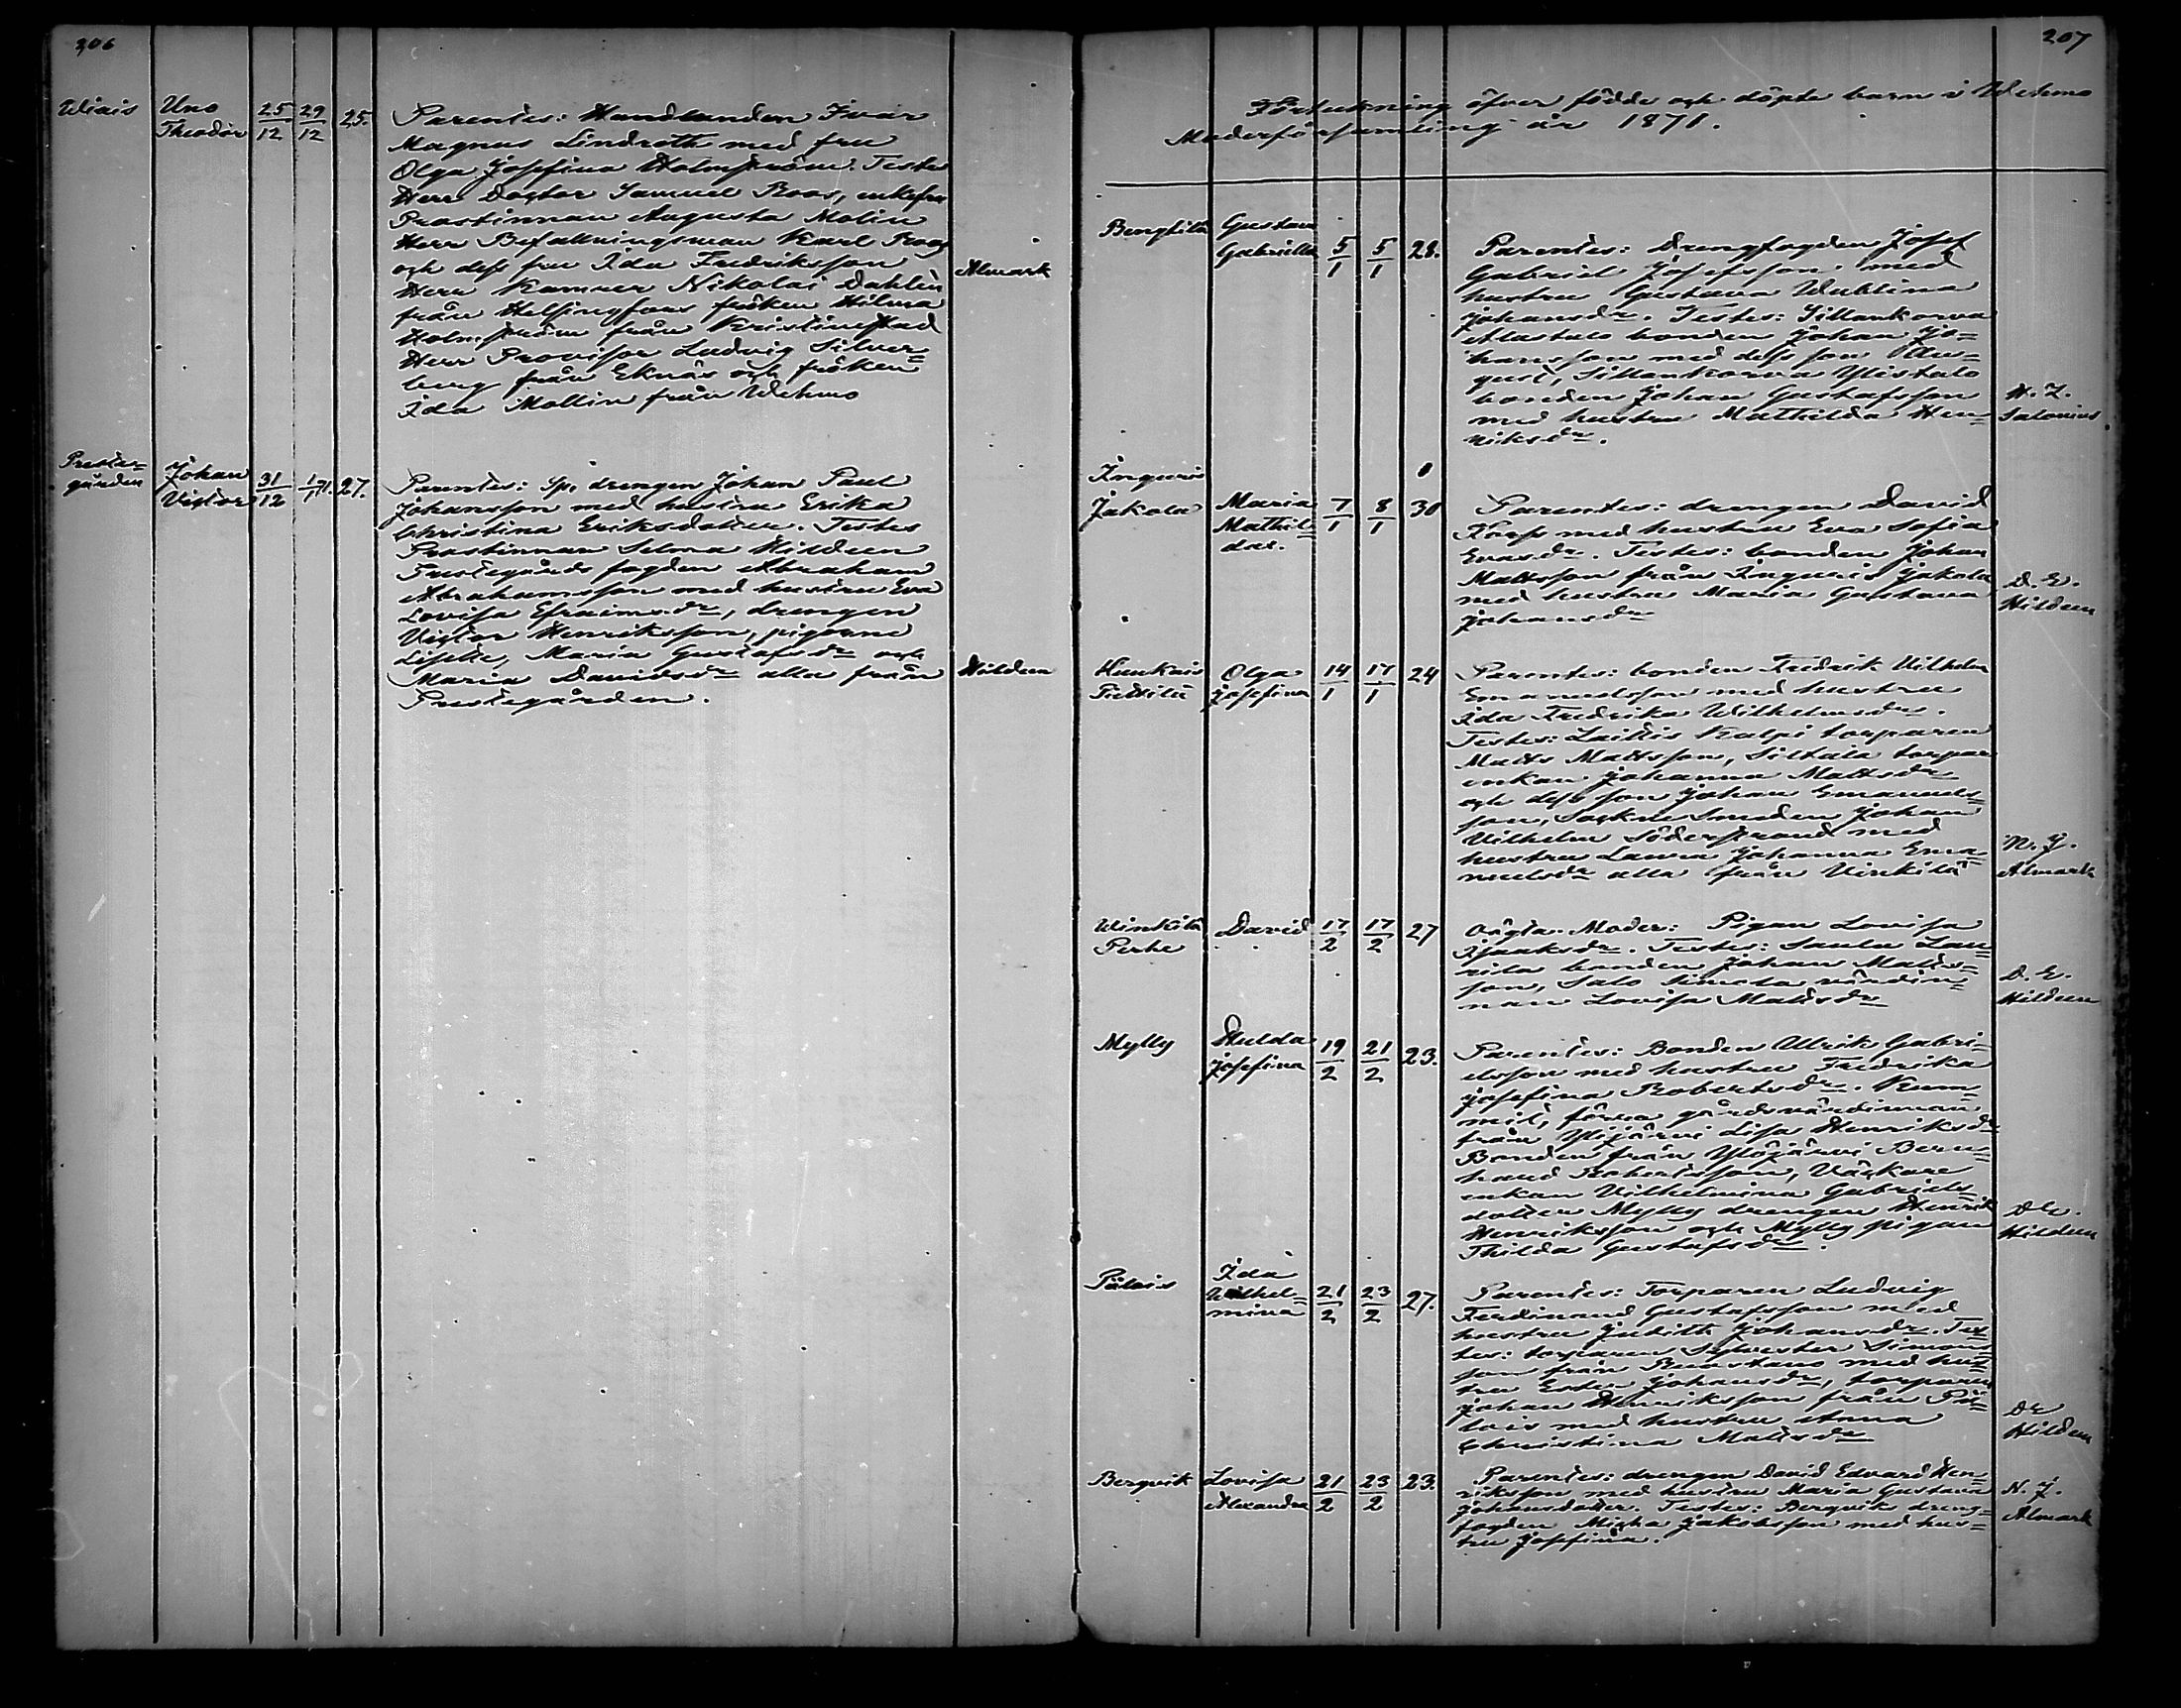 206
Wiais Uno 25/12 29/12 25. Parentes: Handlanden Ivar
Theodor Magnus Lindroth med fru
Olga Josefina Holmström. Testes
Herr Doctor Samuel Roos, enkefru
Prostinnan Augusta Molin
Herr Befallningsman Karl Roos
och dess fru Ida Fredriksson
Herr Kamrer Nikolai Dahlin Almark
från Helsingfors fröken Hilma
Holmström från Kristinestad
Herr Provisor Ludvig Silver=
berg från Eknäs och fröken
Ida Mollin från Wehmo
Preste=
gården Johan 31/12 1/1 71. 27. Parentes: Sp. drengen Johan Paul
Victor Johansson med hustru Erika
Christina Eriksdotter. Testes
Prostinnan Selma Hildeen
Prestegårds fogden Abraham
Abrahamsson med hustru Eva
Lovisa Efraimsdr, drengen
Victor Henriksson, pigorna
Lisette, Maria Gustafsdr och
Maria Davidsdr alla från Hildeen
Prestegården.
207
Förteckning öfver födde och döpte barn i Wehmo
Moderförsamling år 1871.
Bengtilä Gustava
Gabriella 5/1 5/1 28. Parentes: Drengfogden Josef
Gabriel Josefsson med
hustru Gustava Wublina
Johansdr. Testes: Sillankorva
Alastalo bonden Johan Jo=
hansson med dess son Au=
gust, Sillankorva Ylistalo
bonden Johan Gustafsson H. Z.
med hustru Mathilda Hen= Salonius
riksdr.
Inguris
Jakola Maria 7/1 8/1 30 Parentes: drengen David
Mathil= Korp med hustru Eva Sofia
da. Evasdr. Testes: bonden Johan
Mattsson från Inguris Jakola D. E.
med hustru Maria Gustava Hildeen
Johansdr
Hunkais Olga 14/1 17/1 24 Parentes: bonden Fredrik Vilhelm
Josefina Emanuelsson med hustru
Ida Fredrika Wilhelmsdr.
Testes: Laittis Kulpi torparen
Matts Mattsson, Siltala torpar
enkan Johanna Mattsdr
och dess son Johan Emanuels=
son, Sockne Smeden Johan
Vilhelm Söderstrand med N. J.
hustru Laura Johanna Ema=
nuelsdr alla från Vinkilä Almark
Winkilä David 17/2 17/2 27 Oägta. Moder: Pigan Lovisa
Perhe Isaaksdr. Testes: Saula Lau=
rila bonden Johan Matts=
son, Salo Simola värdin= D. E.
nan Lovisa Mattsdr Hildeen
Mylly Hulda 19/2 21/2 23. Parentes: Bonden Ulrik Gabri=
Josefina elsson med hustru Fredrika
Josefina Robertsdr. Kum=
mit, förra gårdsvärdinnan
från Ylijärvi Lisa Henriksdr
Bonden från Ylöjärvi Bern=
hard Robertsson, Väckare
enkan Vilhelmina Gabriels=
dotter Mylly drengen Henrik D E.
Henriksson och Mylly pigan Hildeen
Thilda Gustafsdr.
Pälais Ida
Wilhel= 21/2 23/2 27. Parentes: Torparen Ludvig
mina Ferdinand Gustafsson med
hustru Judith Johansdr. Tes=
tes: torparen Sylvester Simons=
son från Puostano med hus=
tru Ester Johansdr, torparen
Johan Henriksson från Pä=
lais med hustru Anna D E
Christina Mattsdr Hildeen
Bergvik Lovisa 21/2 23/2 23. Parentes: drengen David Edvard Hen=
Alexandra riksson med hustru Maria Gustava N. J.
Johansdotter. Testes: Bergvik dreng= Almark
fogden Micka Jakobsson med hus=
tru Josefina.